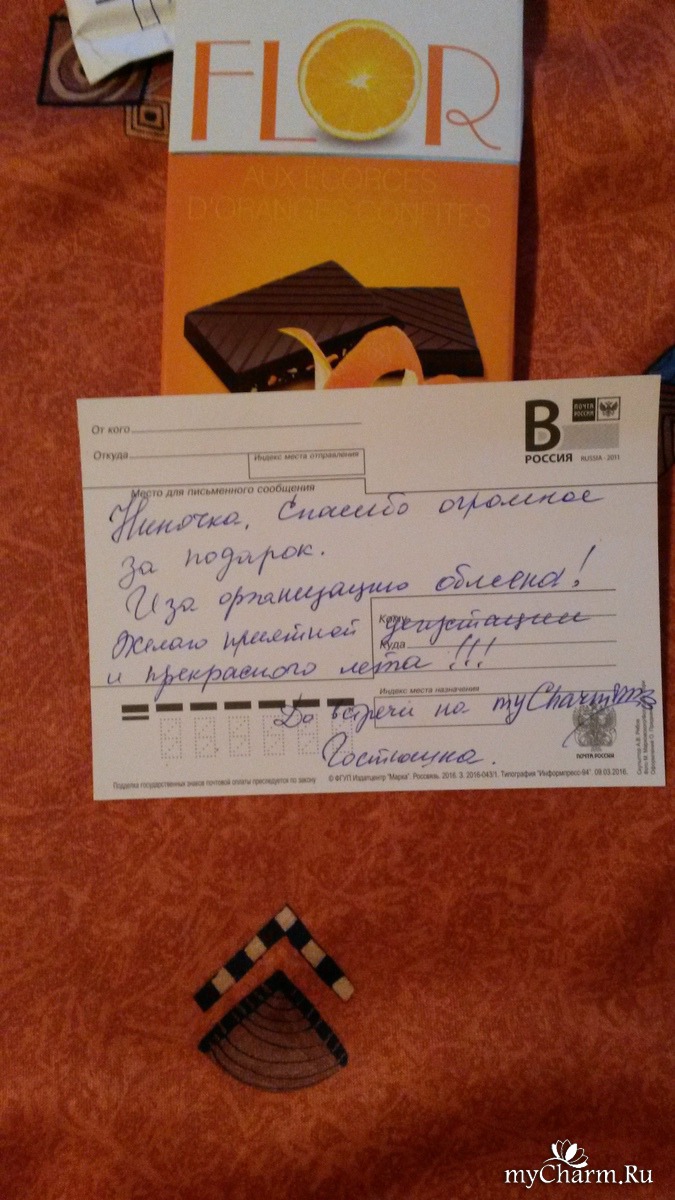 FLOR
AUX ECORCES
D'ORANGES CONFITES
От кого
Откуда
Индекс места отправления
В
ПОЧТА РОССИИ
РОССИЯ RUSSIA · 2011
Место для письменного сообщения
Ниночка, Спасибо огромное
за подарок.
И за организацию обмена!
Кому
Желаю приятной дегустации
Куда
и прекрасного лета!!!
Индекс места назначения
До встречи на myCharm
Гостюшка.
ПОЧТА РОССИИ
Подделка государственных знаков почтовой оплаты преследуется по закону
© ФГУП Издатцентр "Марка". Россвязь. 2016. З. 2016-043/1. Типография "Информпресс-94". 09.03.2016.
myCharm.Ru